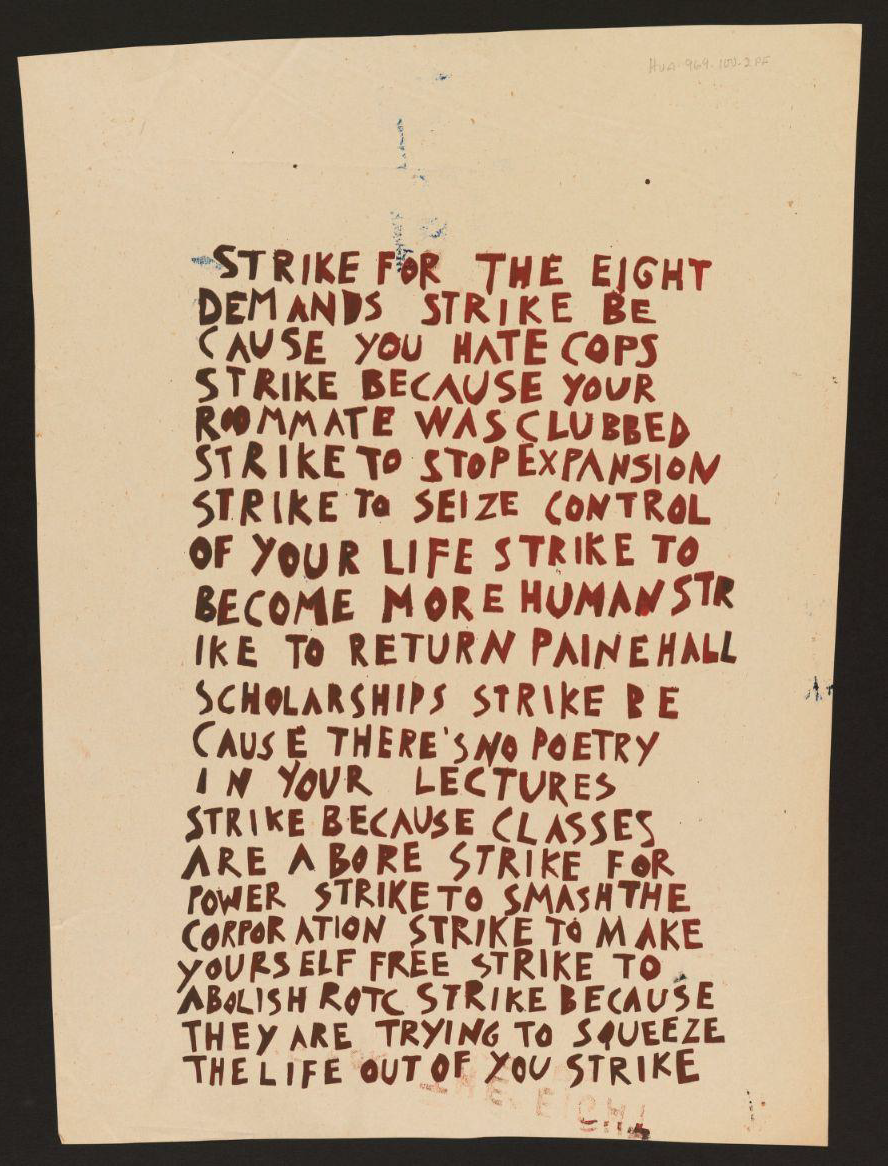 STRIKE FOR THE EIGHT
DEMANDS STRIKE BE
CAUSE YOU HATE COPS
STRIKE BECAUSE YOUR
ROOMMATE WAS CLUBBED
STRIKE TO STOP EXPANSION
STRIKE TO SEIZE CONTROL
OF YOUR LIFE STRIKE TO
BECOME MORE HUMAN STR
IKE TO RETURN PAINE HALL
SCHOLARSHIPS STRIKE BE
CAUSE THERE'S NO POETRY
IN YOUR LECTURES
STRIKE BECAUSE CLASSES
ARE A BORE STRIKE FOR
POWER STRIKE TO SMASH THE
CORPORATION STRIKE TO MAKE
YOURSELF FREE STRIKE TO
ABOLISH ROTC STRIKE BECAUSE
THEY ARE TRYING TO SQUEEZE
THE LIFE OUT OF YOU STRIKE
THE EIGHT